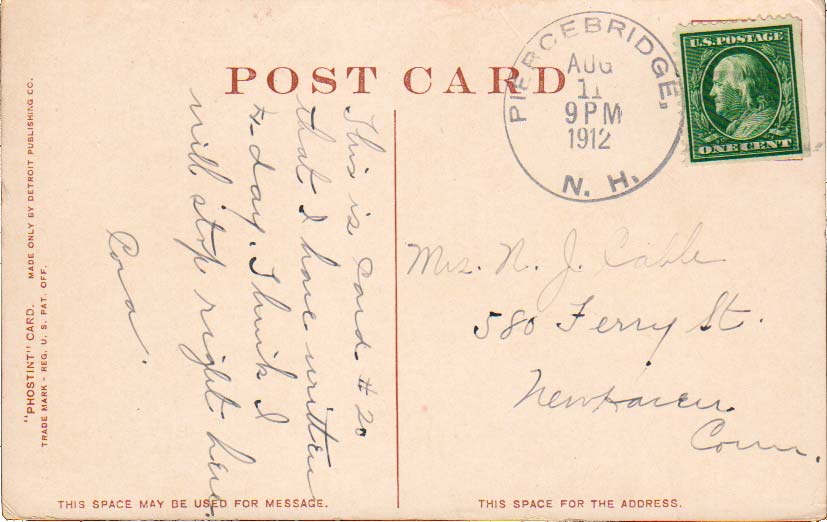 POST CARD
PIERCEBRIDGE,
AUG
11
9 PM
1912
N. H.
U.S. POSTAGE
ONE CENT
This is Card #20
that I have written
to-day. Think I
will stop right here.
Cora.
Mrs. N. J. Cable
580 Ferry St.
New Haven
Conn.
"PHOSTINT" CARD. MADE ONLY BY DETROIT PUBLISHING CO.
TRADE MARK - REG. U. S. PAT. OFF.
THIS SPACE MAY BE USED FOR MESSAGE.
THIS SPACE FOR THE ADDRESS.